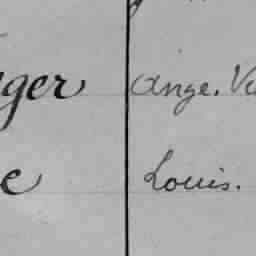 ger Ange. V
e Louis.